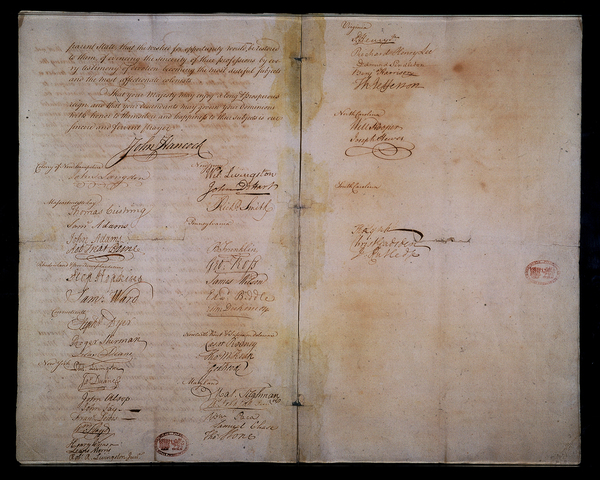 parent State that the wishes for opportunity would be restored
to them, of evincing the sincerity of their professions by eve
ry testimony of devotion becoming the most dutiful subjects
and the most affectionate colonists.
That your Majesty may enjoy a long & prosperous
reign, and that your descendants may govern your Dominions
with honor to themselves and happiness to their subjects is our
sincere and fervent prayer.
John Hancock
Colony of New hampshire
John Langdon
Massachusetts bay
Thomas Cushing
Saml Adams
John Adams
Robt Treat Paine
Step Hopkins
Sam: Ward
Connecticut
Elipht Dyer
Roger Sherman
Silas Deane
New York
Phil. Livingston
Jas Duane
John Alsop
John Jay
Wm Floyd
Lewis Morris
Robt R Livingston Junr
New Jersey
Wil: Livingston
John D Hart
Richd Smith
Pennsylvania
B Franklin
Geo: Ross
James Wilson
Edwd Biddle
John Dickinson
Caesar Rodney
Tho M:Kean
Geo Read
Maryland
Mat. Tilghman
Wm Paca
Samuel Chase
Tho Stone
Virginia
P. Henry Jr
Richard Henry Lee
Edmund Pendleton
Benj Harrison
Th: Jefferson
North Carolina
Will Hooper
Joseph Hewes
South Carolina
Chrisr Gadsden
J. Rutledge